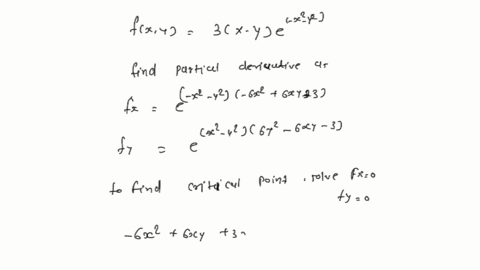 f(x,y) = 3(x-y)e^(-x²-y²)
find partial derivative as
fx = e^(-x²-y²)(-6x²+6xy+3)
fy = e^(x²-y²)(6y²-6xy-3)
to find critical point, solve fx=0
fy=0
-6x² + 6xy + 3